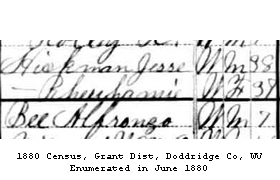 Hickman Jesse W M 38
— Rhuhamie W F 37
Bee Alfronzo W M 7
1880 Census, Grant Dist, Doddridge Co, WV
Enumerated in June 1880